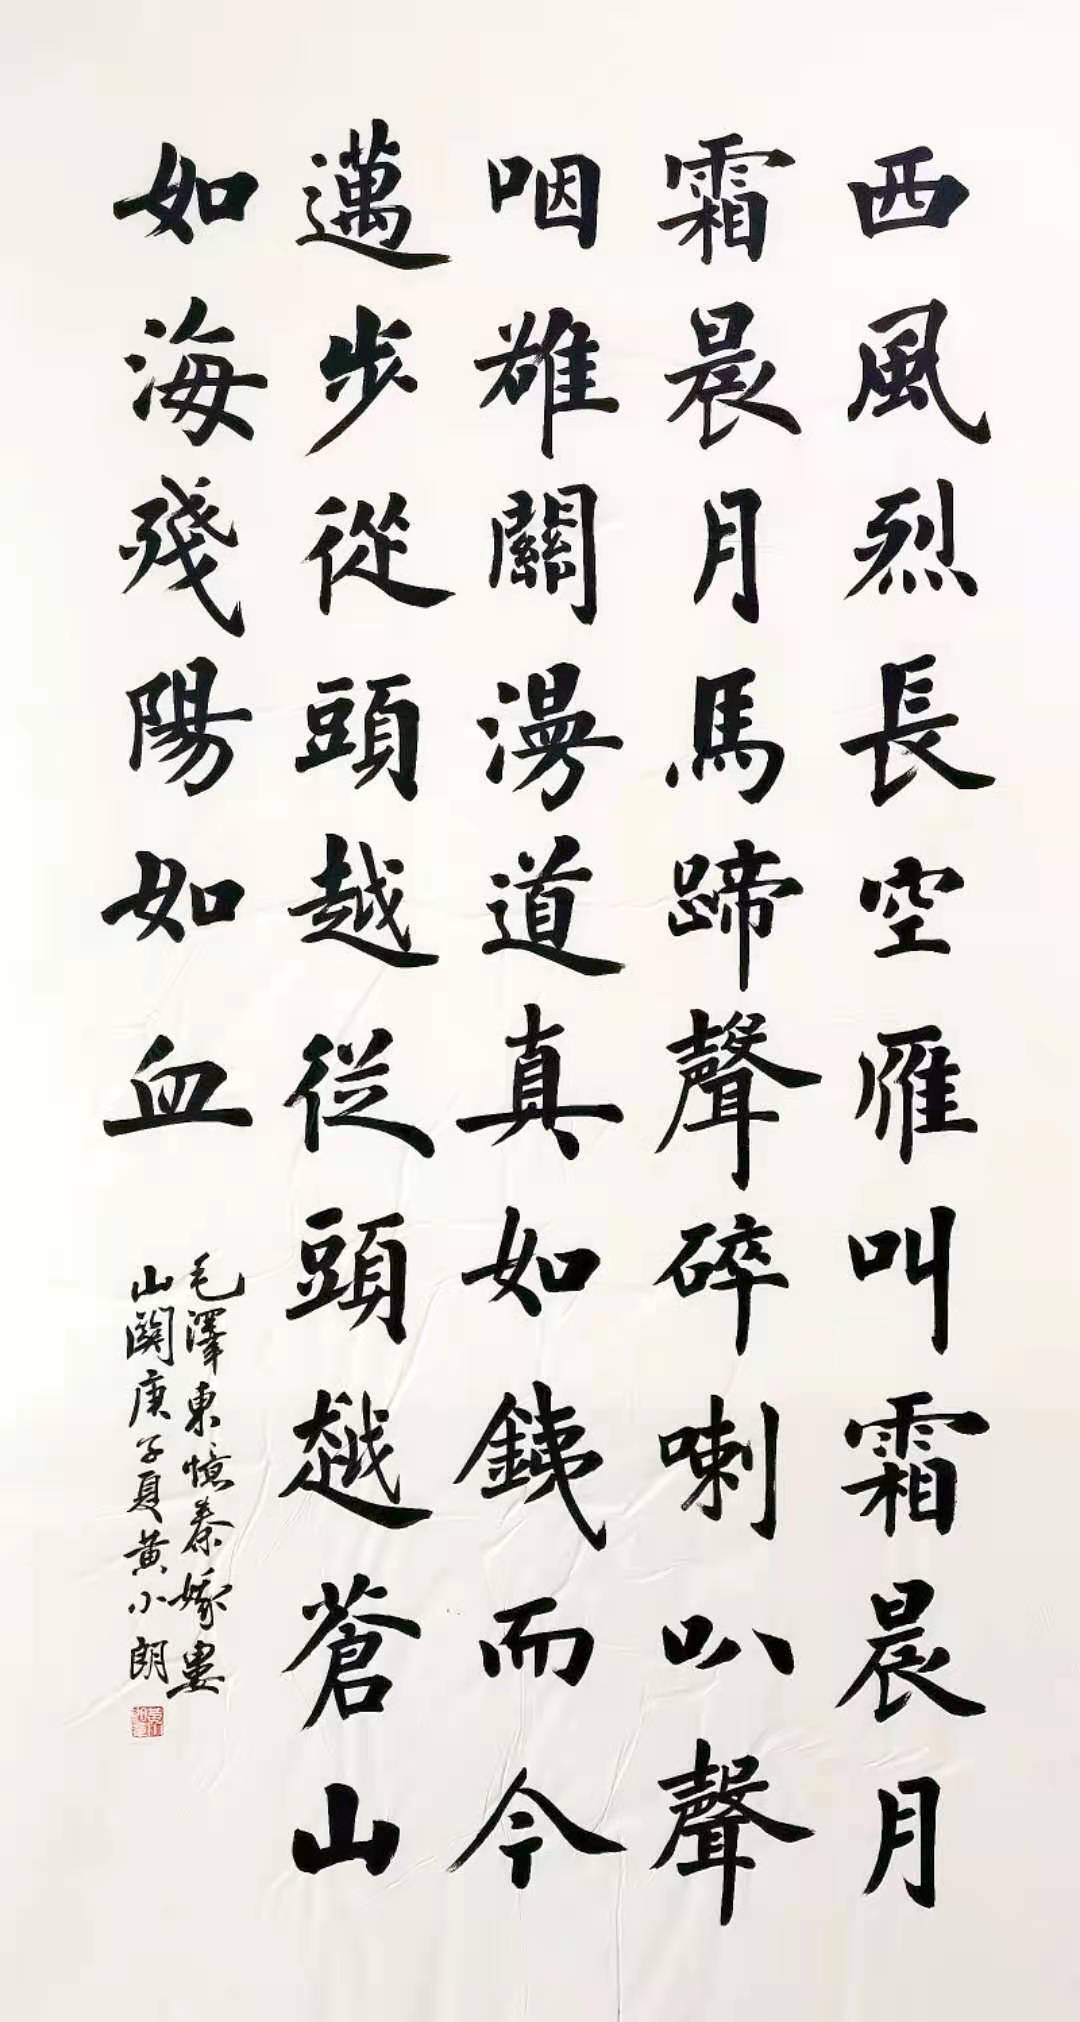 西風烈長空雁叫霜晨月
霜晨月馬蹄聲碎喇叭聲
咽雄關漫道真如鐵而今
邁步從頭越從頭越蒼山
如海殘陽如血
毛澤東憶秦娥婁
山関庚子夏黄小朗